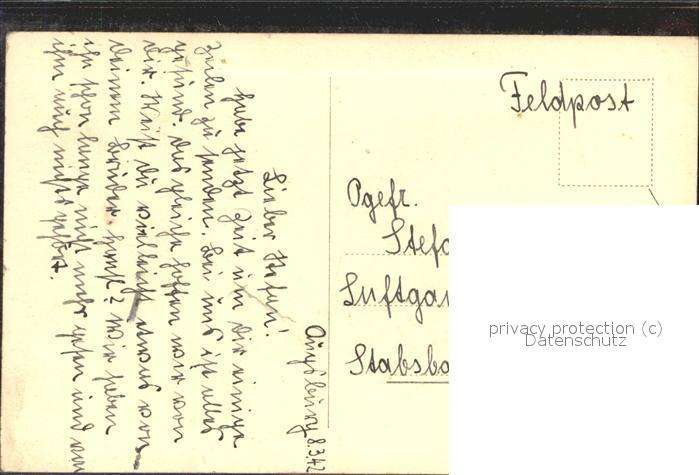 Feldpost
Ogefr.
Stefa
Luftgau
Stabsba
privacy protection (c)
Datenschutz
Augsburg 8.3.42
Lieber Stefan!
Habe jetzt Zeit um dir einige
Zeilen zu senden. Bei uns ist alles
gesund. Das gleiche hoffen wir von
dir. Weißt du vielleicht etwas von
deinem Bruder ? Wir haben
ihn schon lange nicht mehr gesehen und von
ihm auch nichts gehört.